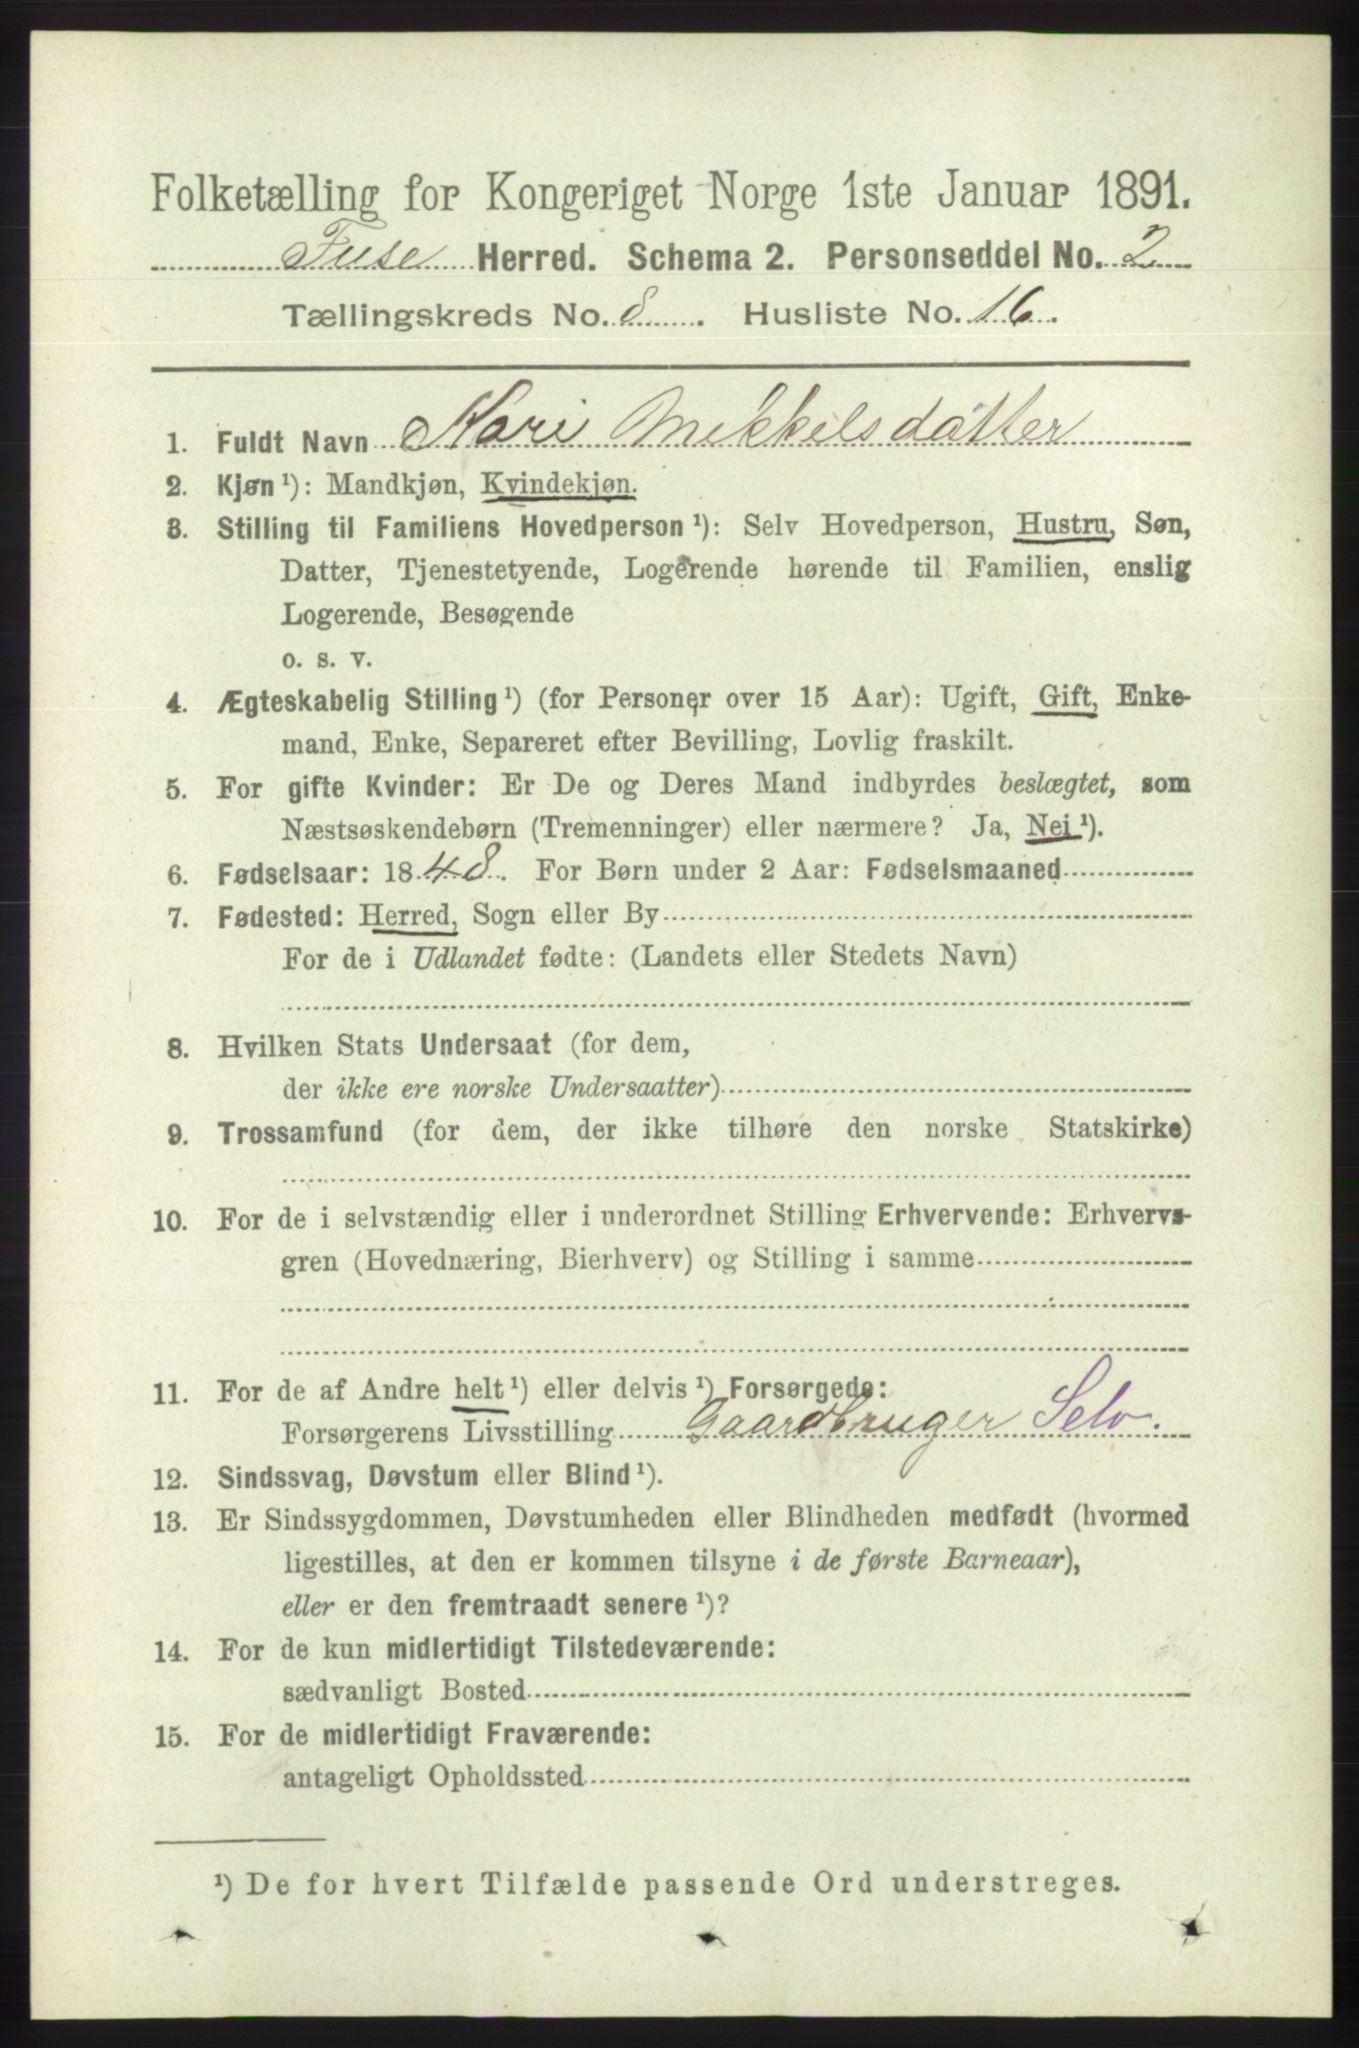 Folketælling for Kongeriget Norge 1ste Januar 1891.
Fuse Herred. Schema 2. Personseddel No. 2
Tællingskreds No. 8. Husliste No. 16.
1. Fuldt Navn Kari Mikkelsdatter
2. Kjøn ¹): Mandkjøn, Kvindekjøn.
3. Stilling til Familiens Hovedperson ¹): Selv Hovedperson, Hustru, Søn,
Datter, Tjenestetyende, Logerende hørende til Familien, enslig
Logerende, Besøgende
o. s. v.
4. Ægteskabelig Stilling ¹) (for Personer over 15 Aar): Ugift, Gift, Enke-
mand, Enke, Separeret efter Bevilling, Lovlig fraskilt.
5. For gifte Kvinder: Er De og Deres Mand indbyrdes beslægtet, som
Næstsøskendebørn (Tremenninger) eller nærmere? Ja, Nei ¹).
6. Fødselsaar: 1848. For Børn under 2 Aar: Fødselsmaaned
7. Fødested: Herred, Sogn eller By
For de i Udlandet fødte: (Landets eller Stedets Navn)
8. Hvilken Stats Undersaat (for dem,
der ikke ere norske Undersaatter)
9. Trossamfund (for dem, der ikke tilhøre den norske Statskirke)
10. For de i selvstændig eller i underordnet Stilling Erhvervende: Erhvervs-
gren (Hovednæring, Bierhverv) og Stilling i samme
11. For de af Andre helt ¹) eller delvis ¹) Forsørgede:
Forsørgerens Livsstilling Gaardbruger Selv.
12. Sindssvag, Døvstum eller Blind ¹).
13. Er Sindssygdommen, Døvstumheden eller Blindheden medfødt (hvormed
ligestilles, at den er kommen tilsyne i de første Barneaar),
eller er den fremtraadt senere ¹)?
14. For de kun midlertidigt Tilstedeværende:
sædvanligt Bosted
15. For de midlertidigt Fraværende:
antageligt Opholdssted
¹) De for hvert Tilfælde passende Ord understreges.